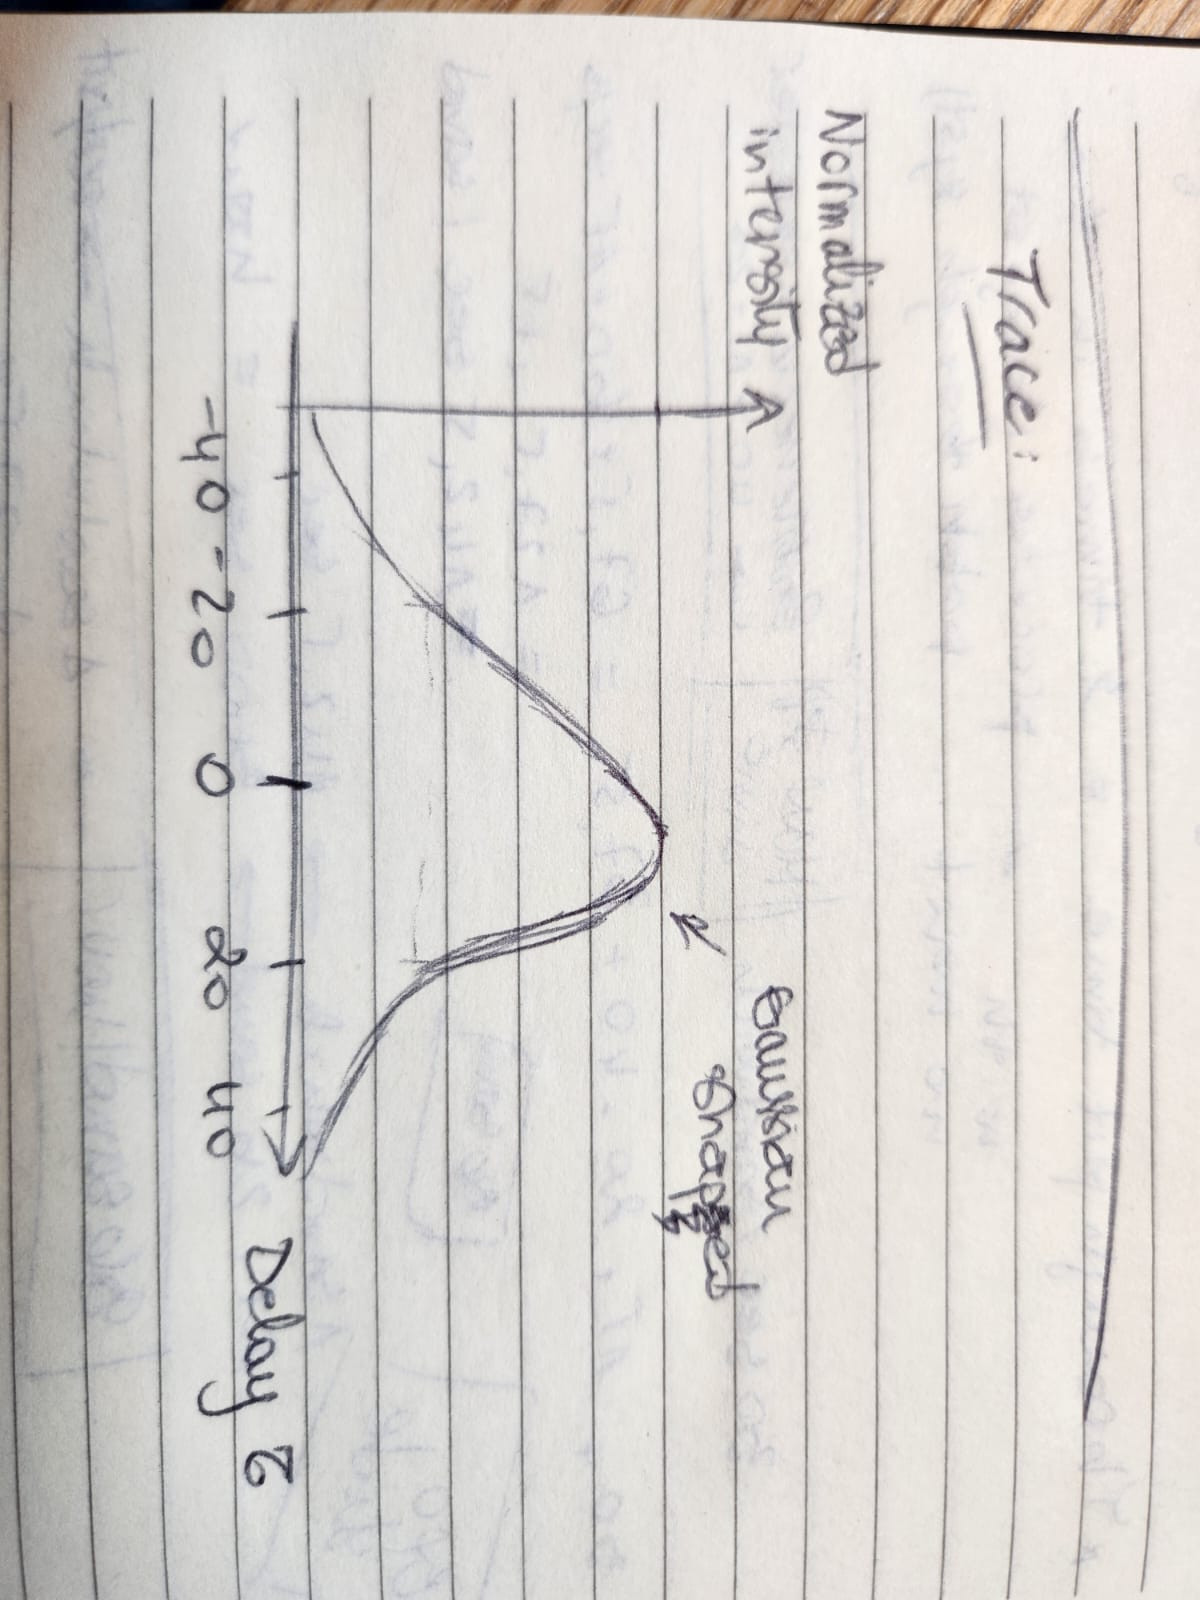 Trace:
Normalized
intensity
Gaussian
Shaped
-40 -20 0 20 40
Delay τ